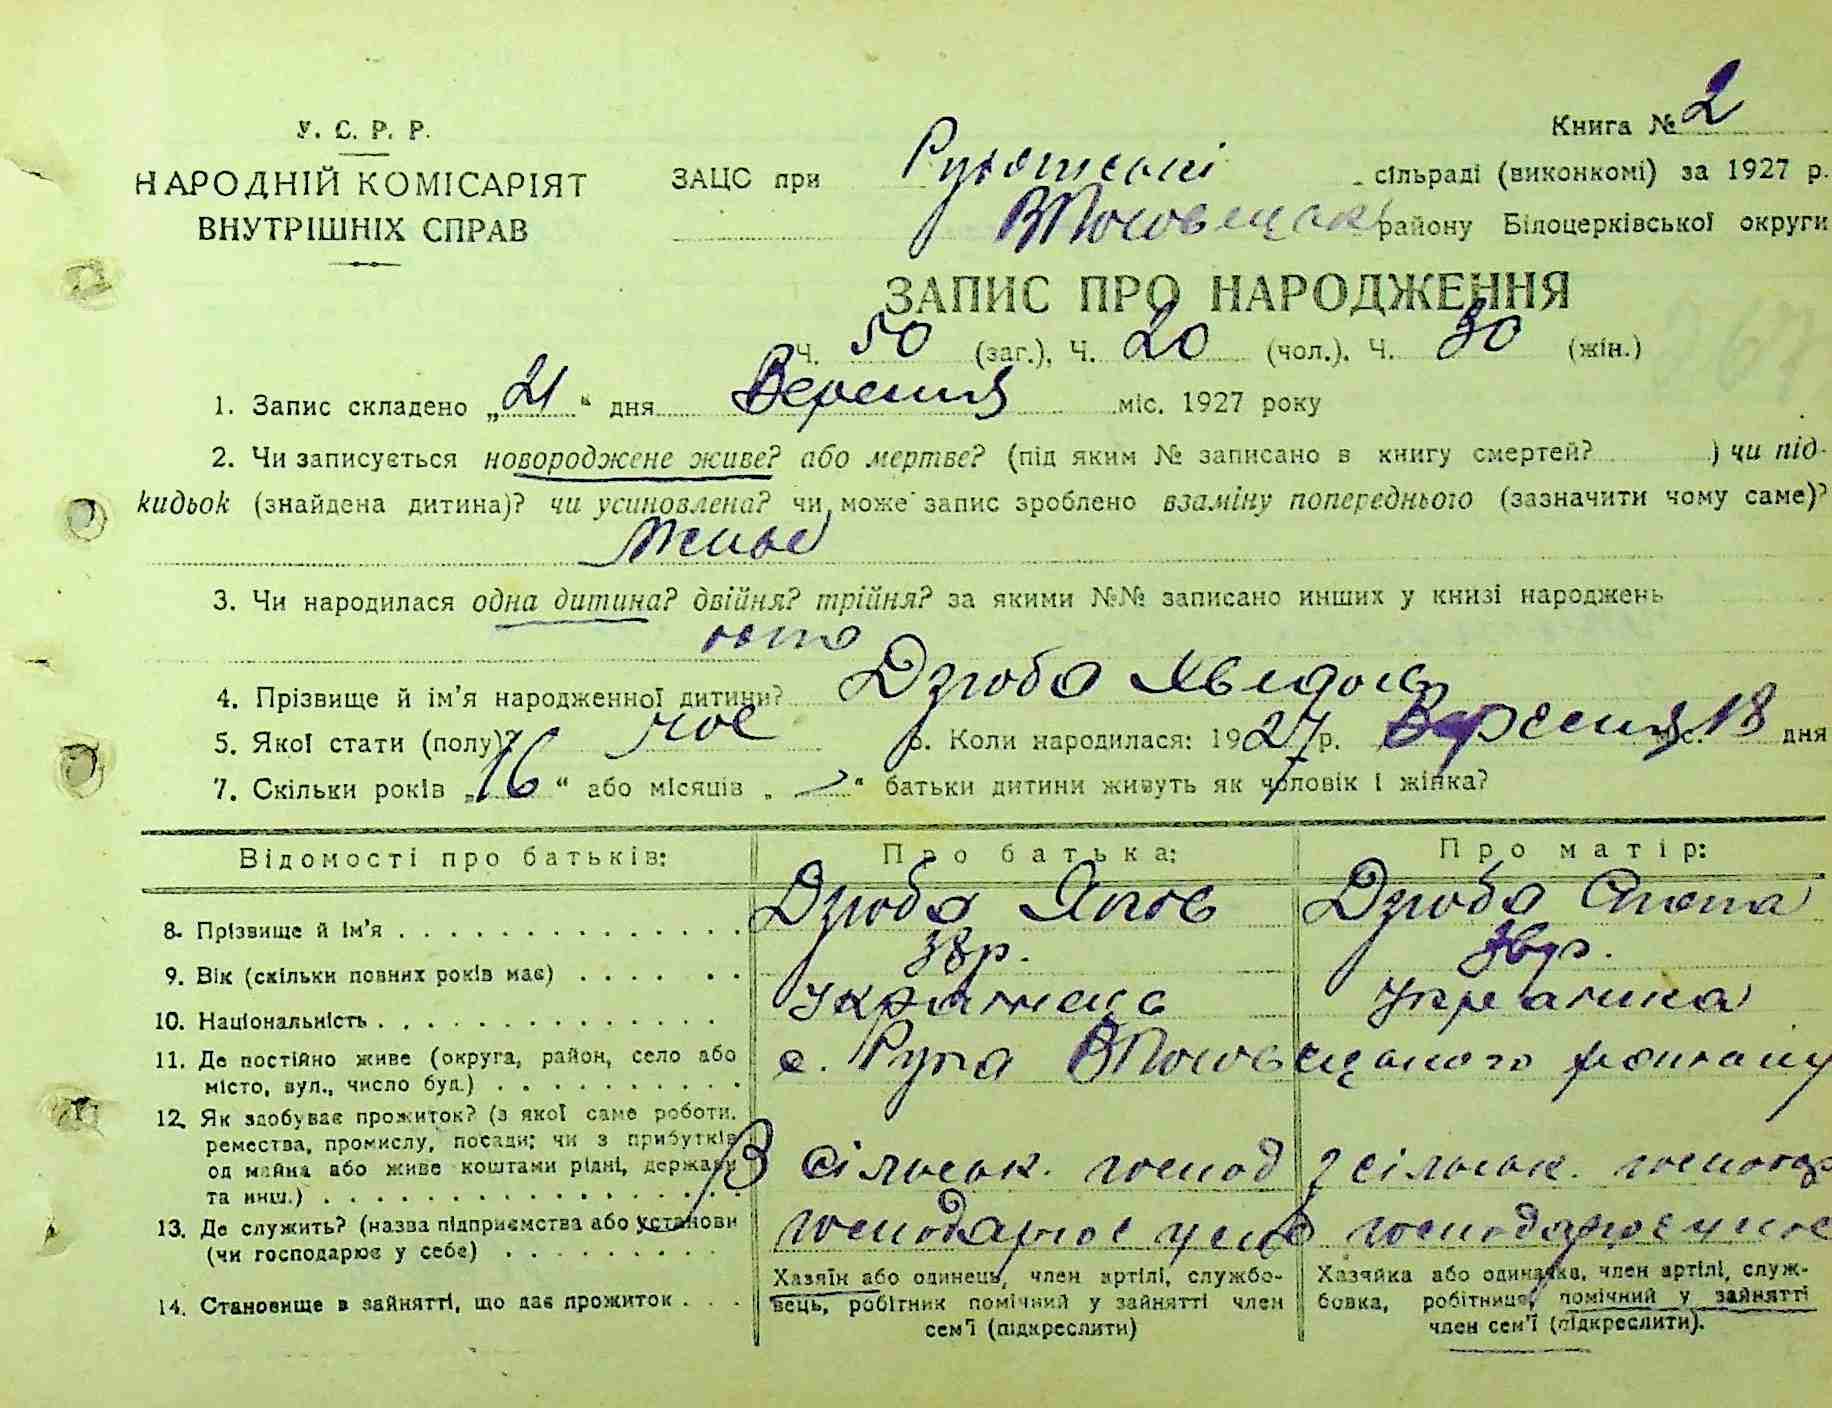 Книга № 2
У. С. Р. Р.
НАРОДНІЙ КОМІСАРІЯТ
ВНУТРІШНІХ СПРАВ
ЗАЦС при сільраді (виконкомі) за 1927 р.
району Білоцерківської округи
ЗАПИС ПРО НАРОДЖЕННЯ
Ч. 50 (заг.), Ч. 20 (чол.), Ч. 30 (жін.)
1. Запис складено „21“ дня Вересня міс. 1927 року
2. Чи записується новороджене живе? або мертве? (під яким № записано в книгу смертей? ) чи під-
кидьок (знайдена дитина)? чи усиновлена? чи може запис зроблено взаміну попереднього (зазначити чому саме)?
3. Чи народилася одна дитина? двійня? трійня? за якими №№ записано инших у книзі народжень
4. Прізвище й ім'я народженної дитини? Дзюба
5. Якої стати (полу)? жоє 6. Коли народилася: 1927 р. Вересня міс. 18 дня
7. Скільки років „16“ або місяців „ “ батьки дитини живуть як чоловік і жінка?
Відомості про батьків: Про батька: Про матір:
8. Прізвище й ім'я Дзюба Яков Дзюба
9. Вік (скільки повних років має) 38р.
10. Національність українець українка
11. Де постійно живе (округа, район, село або
місто, вул., число буд.) с. району
12. Як здобуває прожиток? (з якої саме роботи,
ремества, промислу, посади; чи з прибутків
од майна або живе коштами рідні, держави
та инш.) З сільськ. господ З сільськ. господар
13. Де служить? (назва підприємства або установи
(чи господарює у себе) господарює у себе господарює у себе
14. Становище в зайнятті, що дає прожиток
Хазяїн або одинець, член артілі, службо-
вець, робітник помічний у зайнятті член
сем'ї (підкреслити)
Хазяйка або одиначка, член артілі, служ-
бовка, робітниця, помічний у зайнятті
член сем'ї (підкреслити).